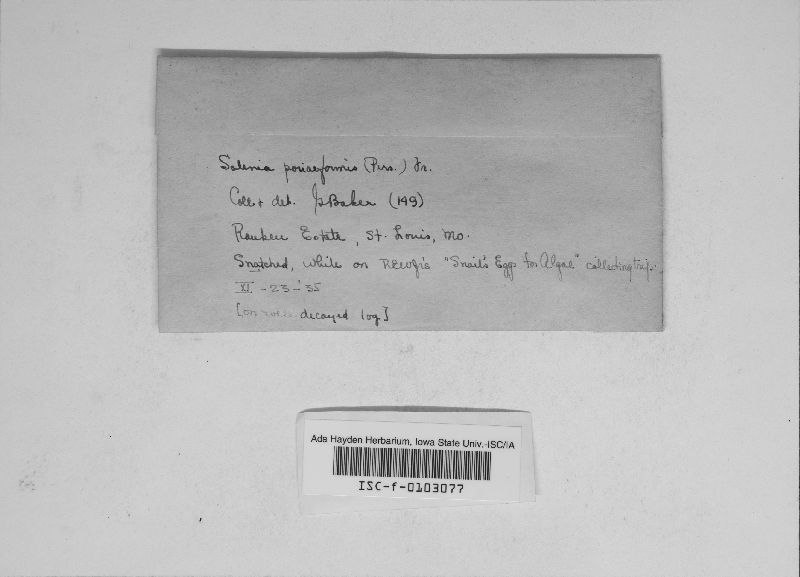 Solenia poriaeformis (Pers.) Fr.
Coll + det. G Baker (149)
Ranken Estate, St. Louis, Mo.
Snatched, while on "Snail's Eggs for Algae" collecting trip.
XI - 23 - '35
[on decayed log]
Ada Hayden Herbarium, Iowa State Univ.-ISC/IA
ISC-f-0103077